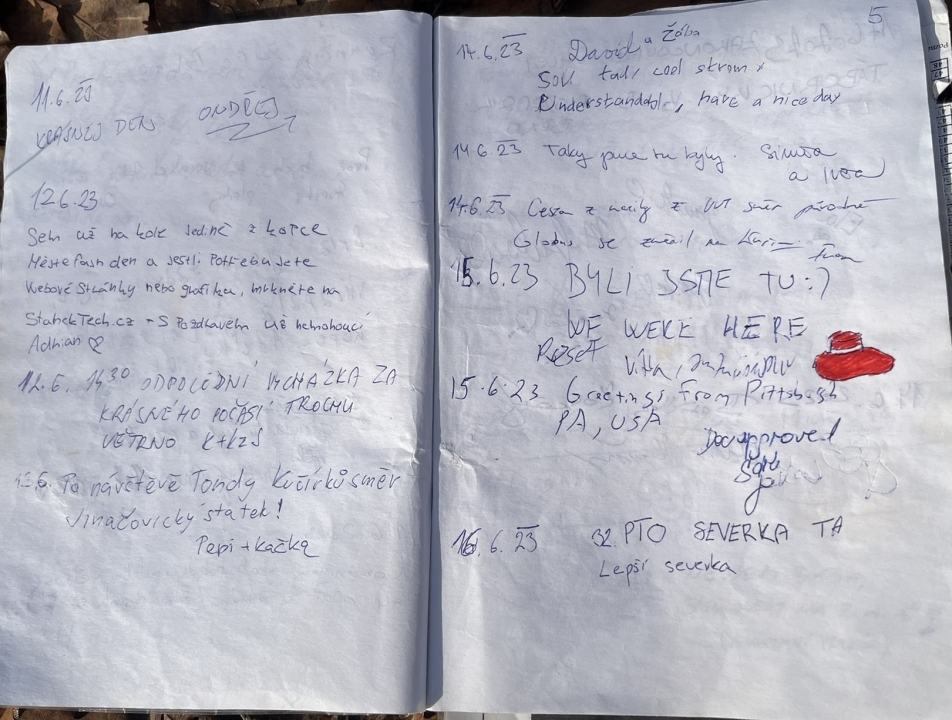 11.6.23
KRÁSNEJ DEN ONDŘEJ
12.6.23
Sem už na kole jedině z kopce
Mějte fash den a jestli potřebujete
webové stránky nebo grafika, mrkněte na
StanekTech.cz - S pozdravem už nemohoucí
Adrian ♡
12.6. 14³⁰ ODPOLEDNÍ VYCHÁZKA ZA
KRÁSNÉHO POČASÍ TROCHU
VĚTRNO K+KZS
Po návštěvě Tondy Kučírků směr
Vinačovický statek!
Pepi + kačka
5
14.6.23 David a Žába
Understandabl, have a nice day
14.6.23 Taky jsme tu byly. Simča
a Iva
14.6.23 Cesta z z směr
Globus se změnil na
15.6.23 BYLI JSME TU :)
WE WERE HERE
15.6.23 Greetings from Pittsburgh
PA, USA
Doc approved
16.6.23 32. PTO SEVERKA TA
Lepší severka